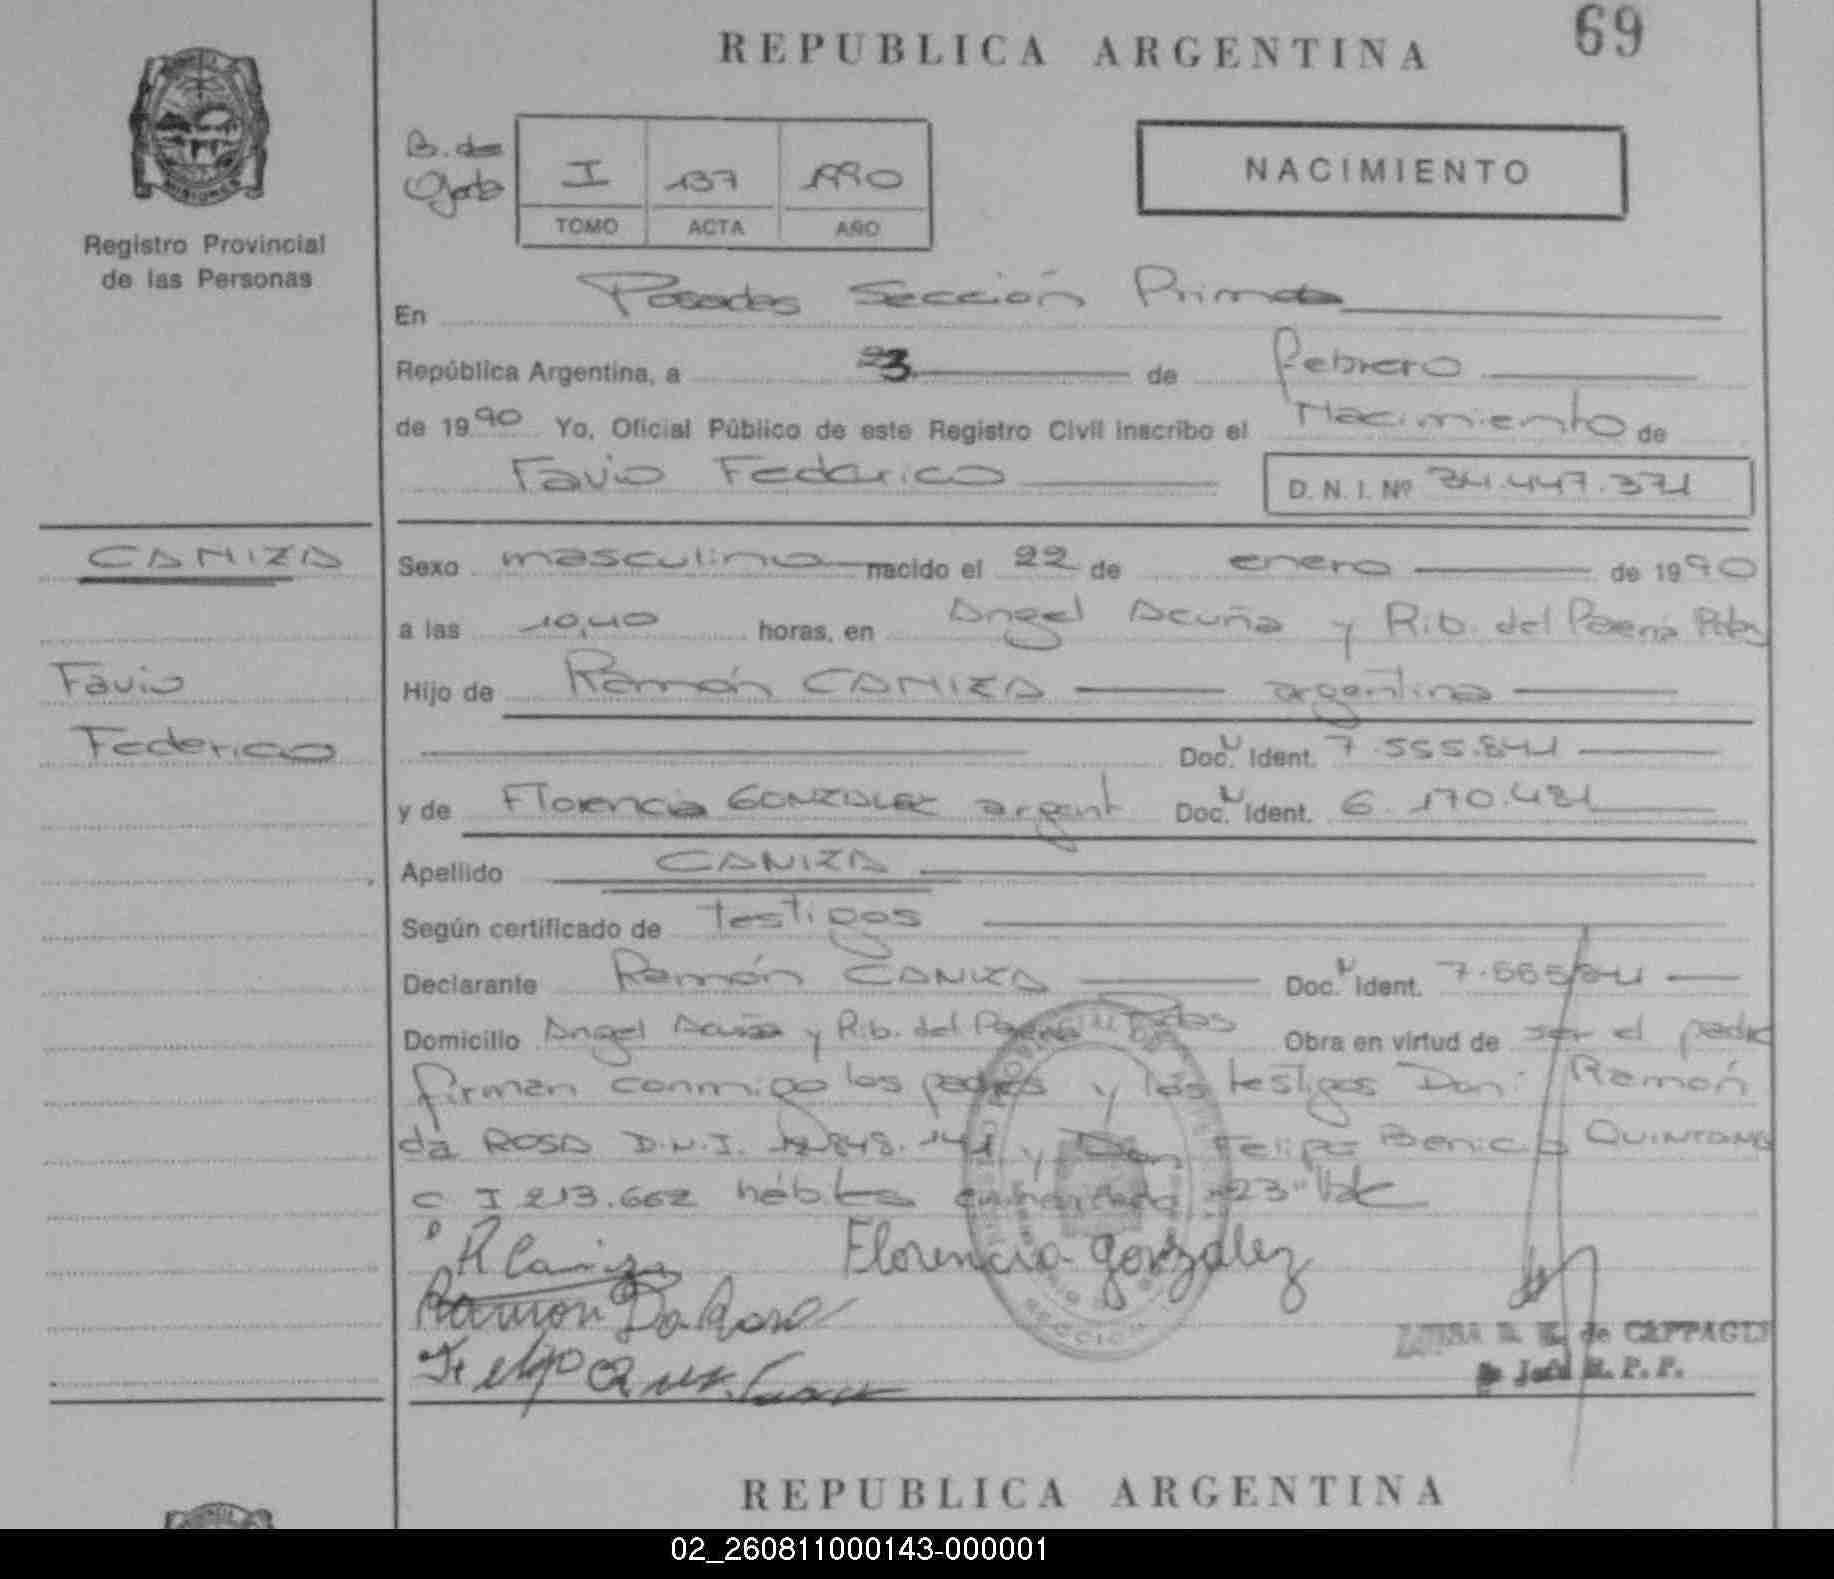 69
REPUBLICA ARGENTINA
MISIONES
Registro Provincial
de las Personas
B. de
I 137 1990
TOMO ACTA AÑO
NACIMIENTO
En Posadas Sección Prima
República Argentina, a 23 de febrero
de 1990 Yo, Oficial Público de este Registro Civil inscribo el Nacimiento de
Favio Federico D. N. I. Nº 34.447.371
CANIZA
Favio
Federico
Sexo masculino nacido el 22 de enero de 1990
a las 10,40 horas, en Angel Acuña y Rib. del Paraná
Hijo de Ramón CANIZA argentina
Doc. Ident. 7.555.841
y de Florencia GONZALEZ argent Doc. Ident. 6.170.481
Apellido CANIZA
Según certificado de Testigos
Declarante Ramón CANIZA Doc. Ident.
Domicilio Angel Acuña y Rib. del Paraná Pdas Obra en virtud de ser el padre
firman conmigo los padres y los testigos Don: Ramón
da ROSA D.N.I. y Don Felipe Benicio QUINTANA
C I 213.662 hábiles "23" Vale
R Caniza Florencia gonzález
Ramon Da Rosa
de CAPPAGLI
Jefe R. P. P.
REPUBLICA ARGENTINA
02_260811000143-000001